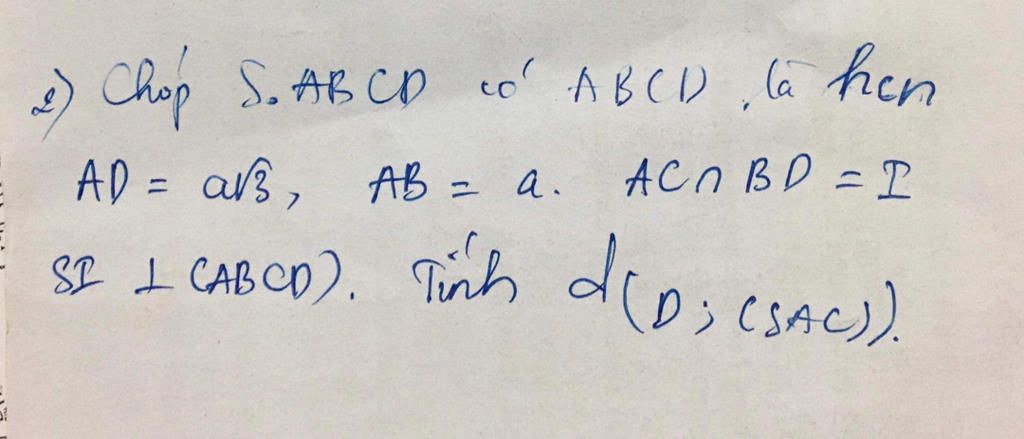 2) Chóp S.ABCD có ABCD là hcn
AD = a√3, AB = a. AC ∩ BD = I
SI ⊥ (ABCD). Tính d(D; (SAC)).